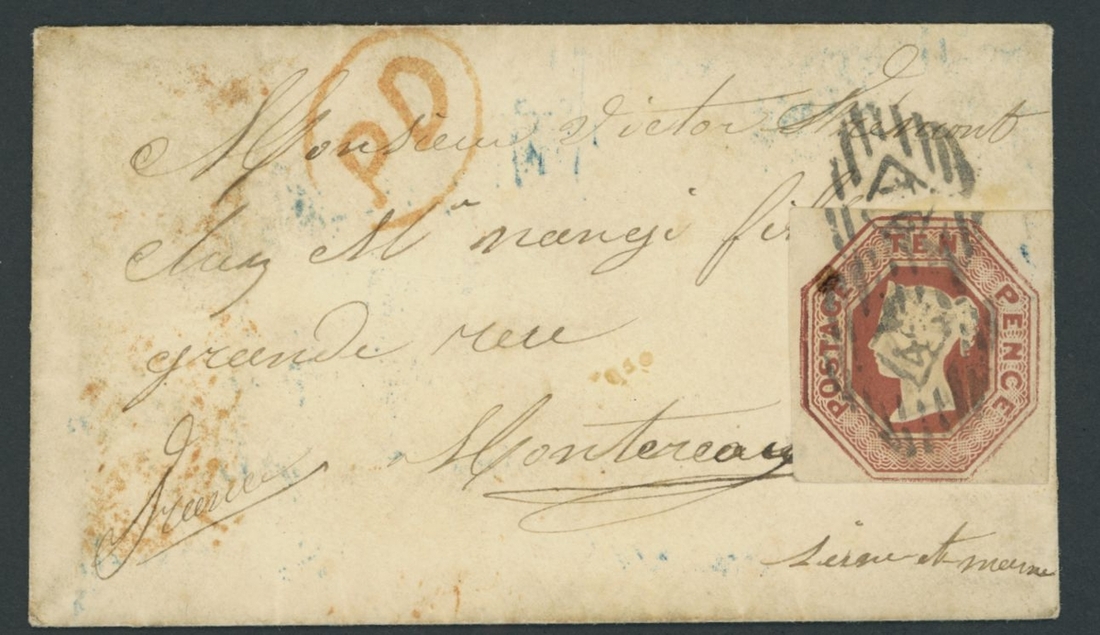 PD
Monsieur Victor
chez Mr nangi fils
grande rue
Montereau
France
seine et marne
POSTAGE TEN PENCE